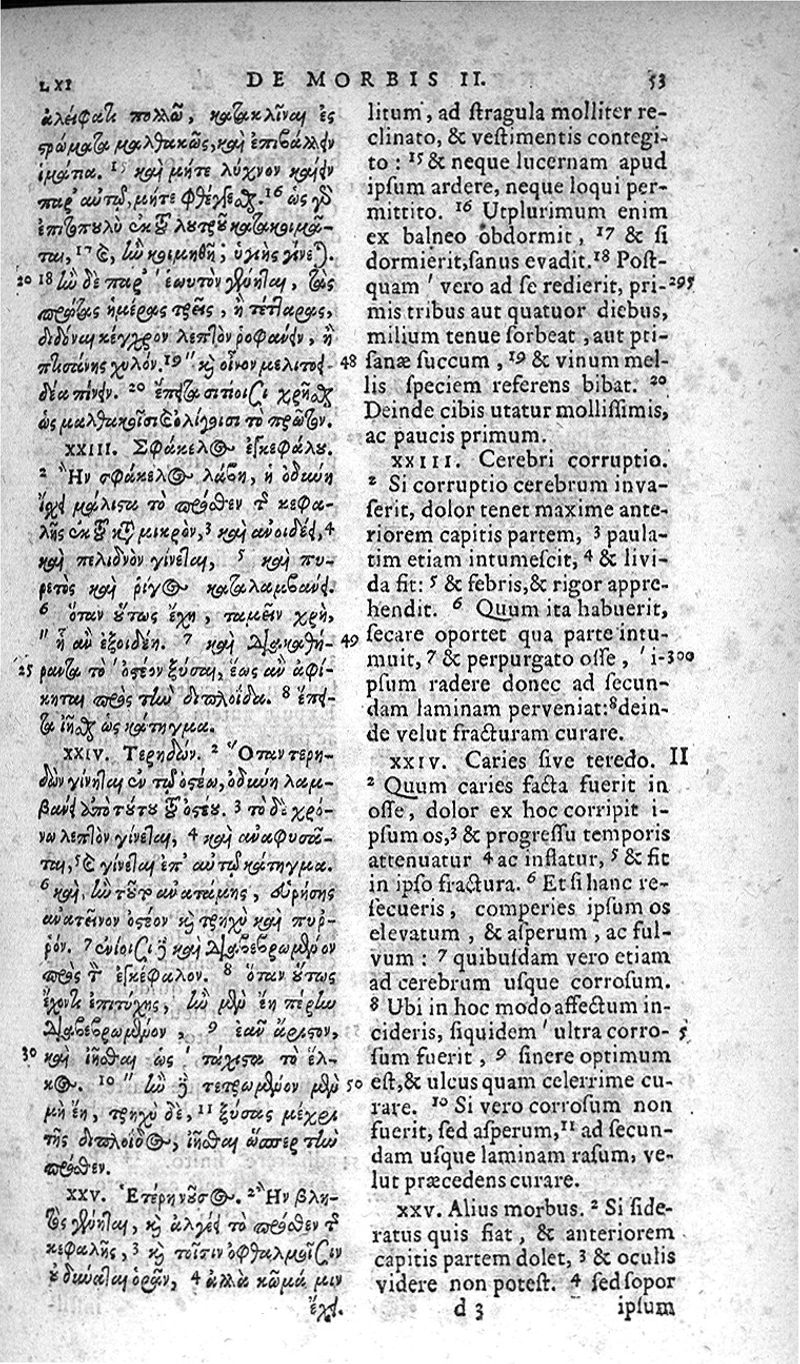 LXI DE MORBIS II. 53
ἀλείφατι πολλῷ, κατακλῖναι ἐς
στρώματα μαλθακῶς, καὶ ἐπιβάλλειν
ἱμάτια. 15 καὶ μήτε λύχνον καίειν
παρ' αὐτῷ, μήτε φθέγγεσθαι. 16 ὡς γὸ
ἐπιτοπουλὺ ἐκ τοῦ λουτροῦ κατακοιμᾶ-
ται, 17 καὶ, ἢν κοιμηθῇ, ὑγιὴς γίνεται.
20 18 ἢν δὲ παρ' ἑωυτὸν γένηται, τὰς
πρώτας ἡμέρας τρεῖς, ἢ τέτταρας,
διδόναι κέγχρον λεπτὸν ῥοφάνειν, ἢ
πτισάνης χυλόν. 19 " καὶ οἶνον μελιτοει-
δέα πίνειν. 20 ἔπειτα σιτίοισι χρῆσθαι
ὡς μαλθακοῖσι καὶ ὀλίγοισι τὸ πρῶτον.
XXIII. Σφάκελος ἐγκεφάλου.
2 Ἢν σφάκελος λάβῃ, ἡ ὀδύνη
ἴσχει μάλιστα τὸ πρόσθεν τῆς κεφα-
λῆς ἐκ τοῦ κατὰ μικρὸν, 3 καὶ ἀνοιδέει, 4
καὶ πελιδνὸν γίνεται, 5 καὶ πυ-
ρετὸς καὶ ῥῖγος καταλαμβάνει.
6 ὅταν οὕτως ἔχῃ, ταμεῖν χρὴ,
" ᾗ ἂν ἐξοιδέῃ. 7 καὶ διακαθή-
25 ραντα τὸ ὀστέον ξῦσαι, ἕως ἂν ἀφί-
κηται πρὸς τὴν διπλοΐδα. 8 ἔπει-
τα ἰῆσθαι ὡς κάτηγμα.
XXIV. Τερηδών. 2 Ὅταν τερη-
δὼν γίνηται ἐν τῷ ὀστέῳ, ὀδύνη λαμ-
βάνει ἀπὸ τούτου τοῦ ὀστέου. 3 τὸ δὲ χρό-
νῳ λεπτὸν γίνεται, 4 καὶ ἀναφυσᾶ-
ται, 5 καὶ γίνεται ἐπ' αὐτῷ κάτηγμα.
6 καὶ, ἢν τοῦτο ἀνατάμῃς, εὑρήσεις
ἀνατεῖνον ὀστέον καὶ τρηχὺ καὶ πυῤ-
ῥόν. 7 ἐνίοισι δὲ καὶ διαβεβρωμένον
πρὸς τὸν ἐγκέφαλον. 8 ὅταν οὕτως
ἔχοντι ἐπιτύχῃς, ἢν μὲν ἔῃ πέρην
διαβεβρωμένον, 9 ἐᾷν ἄριστον,
30 καὶ ἰῆσθαι ὡς τάχιστα τὸ ἕλ-
κος. 10 " ἢν δὲ τετρωμένον μὲν
μὴ ἔῃ, τρηχὺ δὲ, 11 ξύσας μέχρι
τῆς διπλοΐδος, ἰῆσθαι ὥσπερ τὴν
πρόσθεν.
XXV. Ἑτέρη νοῦσος. 2 Ἢν βλη-
τὸς γένηται, καὶ ἀλγέει τὸ πρόσθεν τῆς
κεφαλῆς, 3 καὶ τοῖσιν ὀφθαλμοῖσιν
οὐ δύναται ὁρᾷν, 4 ἀλλὰ κῶμά μιν
ἔχει.
litum, ad stragula molliter re-
clinato, & vestimentis contegi-
to: 15 & neque lucernam apud
ipsum ardere, neque loqui per-
mittito. 16 Utplurimum enim
ex balneo obdormit, 17 & si
dormierit, sanus evadit. 18 Post-
quam ' vero ad se redierit, pri- 295
mis tribus aut quatuor diebus,
milium tenue sorbeat, aut pti-
48 sanæ succum, 19 & vinum mel-
lis speciem referens bibat. 20
Deinde cibis utatur mollissimis,
ac paucis primum.
XXIII. Cerebri corruptio.
2 Si corruptio cerebrum inva-
serit, dolor tenet maxime ante-
riorem capitis partem, 3 paula-
tim etiam intumescit, 4 & livi-
da fit: 5 & febris, & rigor appre-
hendit. 6 Quum ita habuerit,
49 secare oportet qua parte intu-
muit, 7 & perpurgato osse, ' i- 300
psum radere donec ad secun-
dam laminam perveniat: 8 dein-
de velut fracturam curare.
XXIV. Caries sive teredo. II
2 Quum caries facta fuerit in
osse, dolor ex hoc corripit i-
psum os, 3 & progressu temporis
attenuatur 4 ac inflatur, 5 & fit
in ipso fractura. 6 Et si hanc re-
secueris, comperies ipsum os
elevatum, & asperum, ac ful-
vum: 7 quibusdam vero etiam
ad cerebrum usque corrosum.
8 Ubi in hoc modo affectum in-
cideris, siquidem ' ultra corro- 5
sum fuerit, 9 sinere optimum
50 est, & ulcus quam celerrime cu-
rare. 10 Si vero corrosum non
fuerit, sed asperum, 11 ad secun-
dam usque laminam rasum, ve-
lut præcedens curare.
XXV. Alius morbus. 2 Si side-
ratus quis fiat, & anteriorem
capitis partem dolet, 3 & oculis
videre non potest. 4 sed sopor
d 3 ipsum